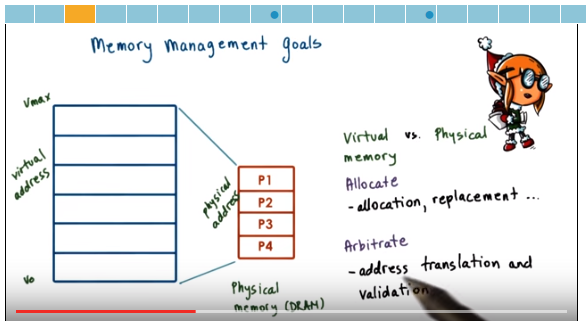 Memory management goals
Vmax
virtual
address
Vo
physical
address
P1
P2
P3
P4
Physical
memory (DRAM)
Virtual vs. Physical
memory
Allocate
- allocation, replacement ...
Arbitrate
- address translation and
validation